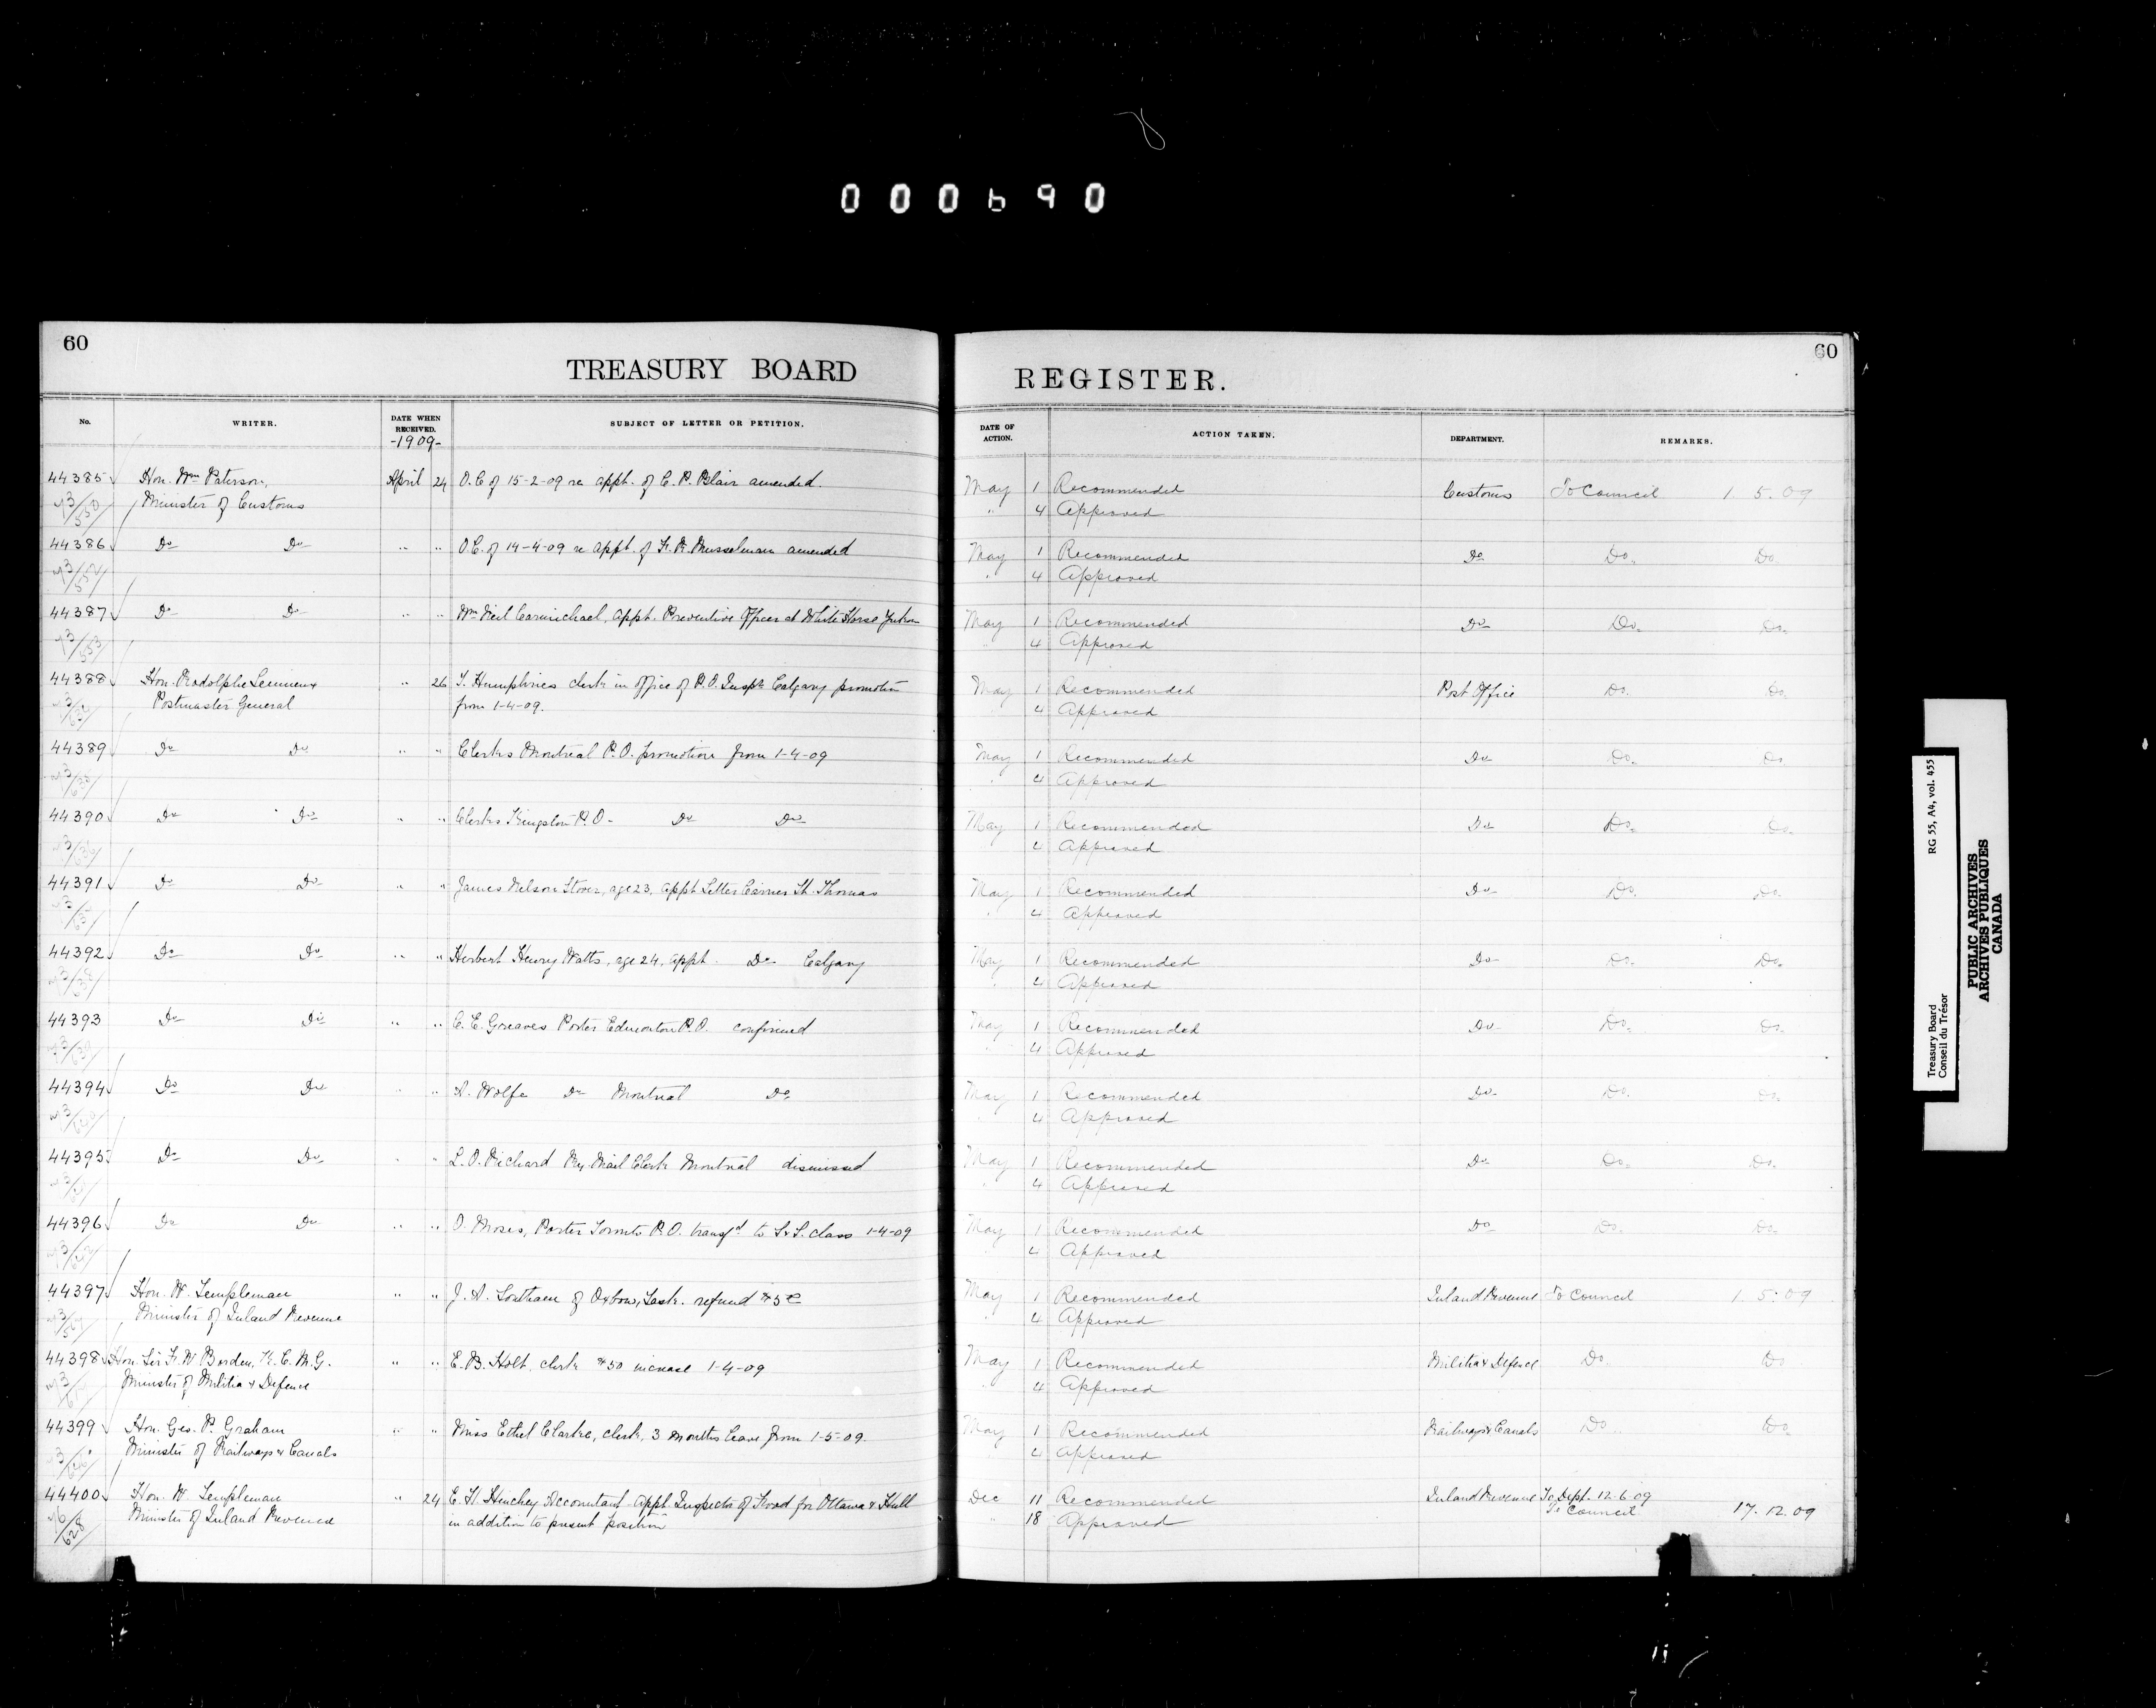 000690
60
TREASURY BOARD
No.
WRITER.
DATE WHEN RECEIVED.
-1909-
SUBJECT OF LETTER OR PETITION.
44385 Hon. Wm Paterson, April 24 O.C of 15-2-09 re appt. of C. P. Blair amended.
93/550 Minister of Customs
44386 Do Do " " O.C. of 14-4-09 re appt. of F. W. Musselman amended
93/552
44387 Do Do " " Wm Neil Carmichael, appt. Preventive Officer at White Horse Yukon
93/553
44388 Hon. Rodolphe Lemieux " 26 T. Humphries clerk in office of P.O. Inspr Calgary promotion
Postmaster General from 1-4-09.
44389 Do Do " " Clerks Montreal P.O. promotion from 1-4-09
44390 Do Do " " Clerks Kingston P.O. Do Do
44391 Do Do " " James Nelson Stover, age 23, appt Letter Carrier St. Thomas
44392 Do Do " " Herbert Henry Watts, age 24, appt. Do Calgary
44393 Do Do " " C. E. Greaves Porter Edmonton P.O. confirmed
44394 Do Do " " A. Wolfe Do Montreal Do
44395 Do Do " " L. O. Richard Ry. Mail Clerk Montreal dismissed
44396 Do Do " " O. Moses, Porter Toronto P.O. transfd to S.S. class 1-4-09
44397 Hon. W. Templeman " " J. A. of Oxbow, Sask. refund $5
Minister of Inland Revenue
44398 Hon. Sir F. W Borden, K.C.M.G. " " E. B. Holt, clerk $50 increase 1-4-09
Minister of Militia & Defence
44399 Hon. Geo. P. Graham " " Miss Ethel Clarke, clerk, 3 months leave from 1-5-09.
Minister of Railways & Canals
44400 Hon. W. Templeman " 24 E. H. Hinchey Accountant appt. Inspector of Food for Ottawa & Hull
96/628 Minister of Inland Revenue in addition to present position
60
REGISTER.
DATE OF ACTION.
ACTION TAKEN.
DEPARTMENT.
REMARKS.
May 1 Recommended Customs To Council 1. 5. 09
" 4 Approved
May 1 Recommended Do Do. Do
" 4 Approved
May 1 Recommended Do Do. Do.
" 4 Approved
May 1 Recommended Post Office Do. Do.
" 4 Approved
May 1 Recommended Do Do. Do.
" 4 Approved
May 1 Recommended Do Do. Do.
" 4 Approved
May 1 Recommended Do Do. Do.
" 4 Approved
May 1 Recommended Do Do. Do.
" 4 Approved
May 1 Recommended Do Do. Do.
" 4 Approved
May 1 Recommended Do Do. Do.
" 4 Approved
May 1 Recommended Do Do. Do.
" 4 Approved
May 1 Recommended Do Do. Do.
" 4 Approved
May 1 Recommended Inland Revenue To Council 1. 5. 09
" 4 Approved
May 1 Recommended Militia & Defence Do. Do
" 4 Approved
May 1 Recommended Railways & Canals Do. Do.
" 4 Approved
Dec 11 Recommended Inland Revenue To Dept. 12-6-09
" 18 Approved To Council 17. 12. 09
Treasury Board RG 55, A4, vol. 455
Conseil du Trésor
PUBLIC ARCHIVES
ARCHIVES PUBLIQUES
CANADA